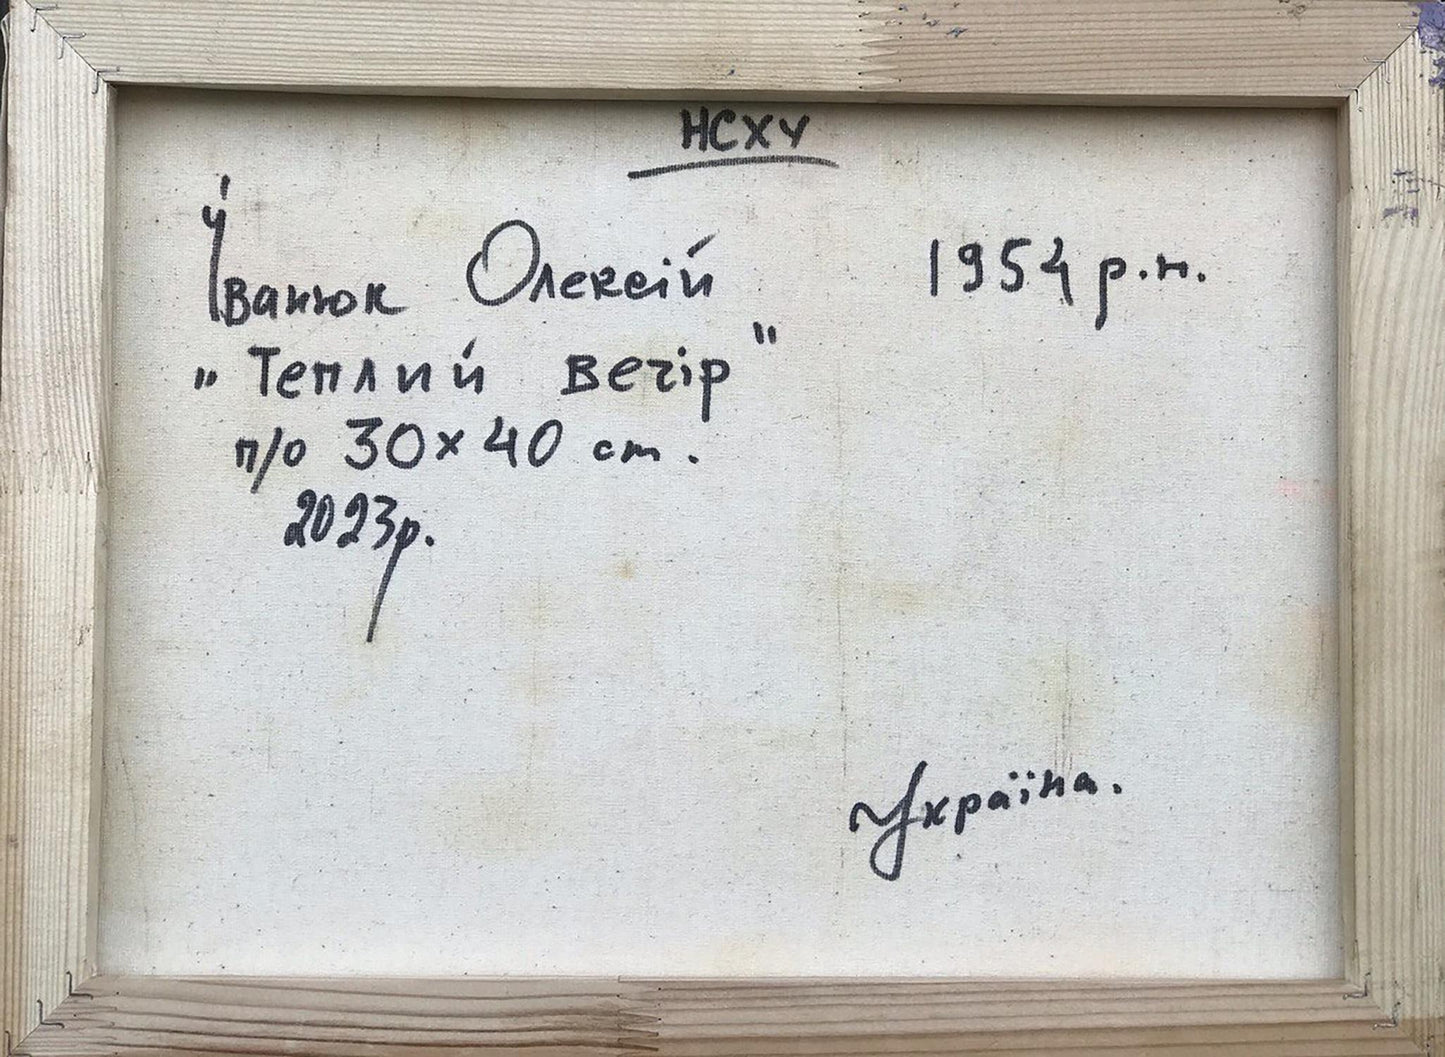 НСХУ
Іванюк Олексій 1954 р.н.
„Теплий вечір"
п/о 30×40 см.
2023р.
Україна.